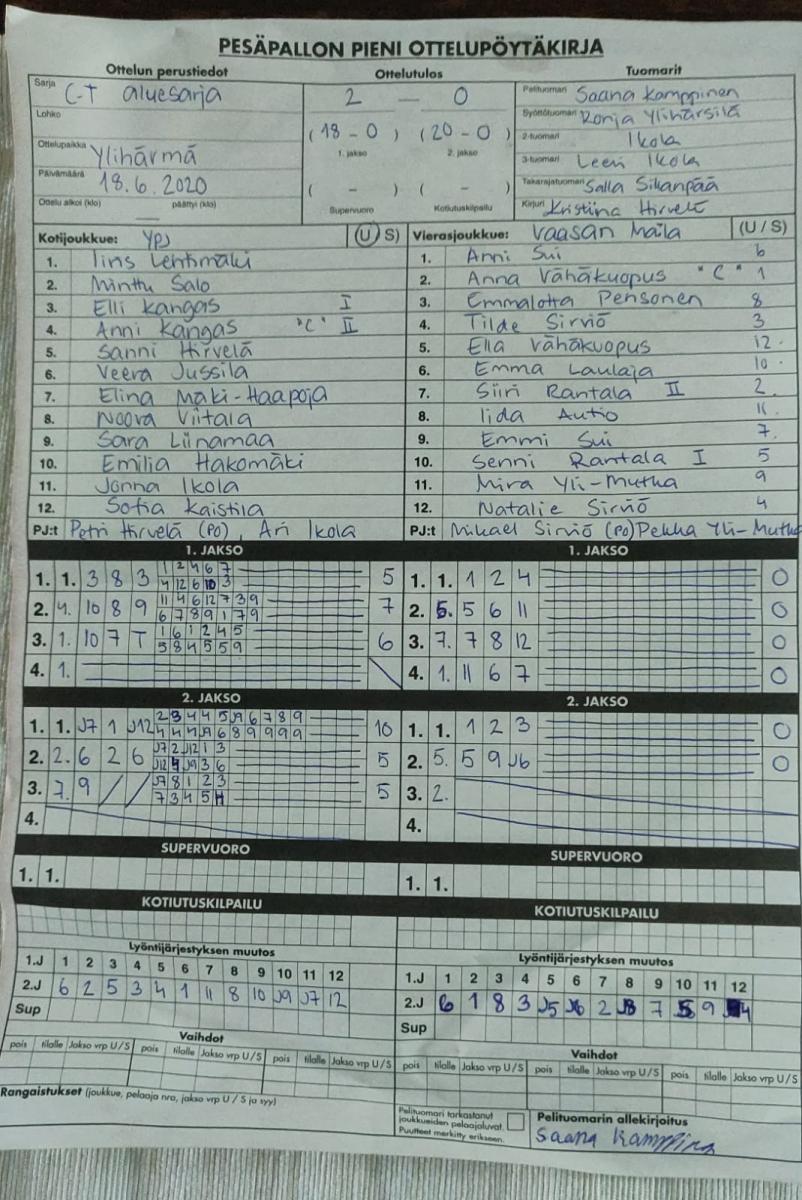 PESÄPALLON PIENI OTTELUPÖYTÄKIRJA
Ottelun perustiedot Ottelutulos Tuomarit
Sarja C-T aluesarja
Lohko
Ottelupaikka Ylihärmä
Päivämäärä 18.6.2020
Ottelu alkoi (klo) — päättyi (klo)
2 — 0
(18-0) (20-0)
1. jakso 2. jakso
( - ) ( - )
Supervuoro Kotiutuskilpailu
Pelituomari Saana Kamppinen
Syöttötuomari Ronja Ylihärsilä
2-tuomari Ikola
3-tuomari Leeni Ikola
Takarajatuomari Salla Sikanpää
Kirjuri Kristiina Hirvelä
Kotijoukkue: YPJ (U S)
1. Iiris Lehtimäki
2. Minttu Salo
3. Elli Kangas I
4. Anni Kangas "C" II
5. Sanni Hirvelä
6. Veera Jussila
7. Elina Mäki-Haapoja
8. Noora Viitala
9. Sara Liinamaa
10. Emilia Hakomäki
11. Jonna Ikola
12. Sofia Kaistila
PJ:t Petri Hirvelä (PO), Ari Ikola
Vierasjoukkue: Vaasan Maila (U / S)
1. Anni Sui 6
2. Anna Vähäkuopus "C" 1
3. Emmalotta Pensonen 8
4. Tilde Sirviö 3
5. Ella Vähäkuopus 12
6. Emma Laulaja 10
7. Siiri Rantala II 2
8. Iida Autio 11
9. Emmi Sui 7
10. Senni Rantala I 5
11. Mira Yli-Mutka 9
12. Natalie Sirviö 4
PJ:t Mikael Sirviö (PO) Pekka Yli-Mutka
1. JAKSO
1. 1. 3 8 3 1 2 4 6 7 5
4 12 6 10 3
2. 4. 10 8 9 11 4 6 12 7 3 9 7
6 7 8 9 1 7 9
3. 1. 10 7 T 1 6 1 2 4 5 6
5 8 4 5 5 9
4. 1.
1. JAKSO
1. 1. 1 2 4 0
2. 5. 5 6 11 0
3. 7. 7 8 12 0
4. 1. 11 6 7 0
2. JAKSO
1. 1. J7 1 J12 2 3 4 4 5 J9 6 7 8 9 10
4 4 4 J9 6 8 9 9 9 9
2. 2. 6 2 6 J7 2 J12 1 3 5
J12 4 J9 3 6
3. 7. 9 / / J7 8 1 2 3 5
7 3 4 5
4.
2. JAKSO
1. 1. 1 2 3 0
2. 5. 5 9 J6 0
3. 2.
4.
SUPERVUORO
1. 1.
SUPERVUORO
1. 1.
KOTIUTUSKILPAILU
KOTIUTUSKILPAILU
Lyöntijärjestyksen muutos
1.J 1 2 3 4 5 6 7 8 9 10 11 12
2.J 6 2 5 3 4 1 11 8 10 J9 J7 12
Sup
Lyöntijärjestyksen muutos
1.J 1 2 3 4 5 6 7 8 9 10 11 12
2.J 6 1 8 3 J5 J6 2 J8 7 5 9 4
Sup
Vaihdot
pois tilalle Jakso vrp U/S pois tilalle Jakso vrp U/S pois tilalle Jakso vrp U/S
Vaihdot
pois tilalle Jakso vrp U/S pois tilalle Jakso vrp U/S pois tilalle Jakso vrp U/S
Rangaistukset (joukkue, pelaaja nro, jakso vrp U / S ja syy)
Pelituomari tarkastanut
joukkueiden pelaajaluvat.
Puutteet merkitty erikseen.
Pelituomarin allekirjoitus
Saana Kamppinen